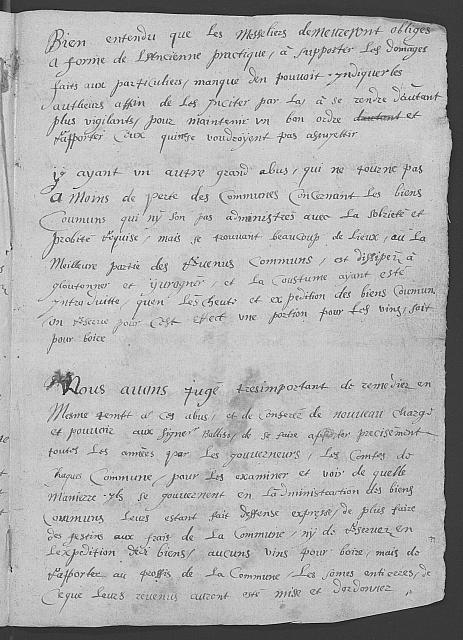 Bien entendu que les Messeliers demeureront obliges
a forme de l'ancienne practique, a supporter les domages
faits aux particuliers, manque d'en pouvoir yndiquer les
d'autheurs affin de les inciter par la, a se rendre d'autant
plus vigilants, pour maintenir un bon ordre d'autant et
rapporter ceux qui ne se voudroyent pas assujettir
Y ayant un autre grand abus, qui ne tourne pas
a moins de perte des Communes concernant les biens
Communs qui ny son pas administres avec la sobrieté et
probité requise, mais se trouvant beaucoup de lieux, ou la
Meilleure partie des revenus Communs, est dissipée à
gloutonner et yurogner, et la coustume ayant esté
yntroduitte, qu'en les et expedition des biens Commun
on reserve pour cest effect une portion pour les vins, soit
pour boire
Nous avons jugé tresimportant de remedier en
Mesme temps a ces abus, et de de nouveau charge
et pouvoir aux Seigr Ballifs, de se faire apporter precisement
toutes les années par les gouverneurs, les Comtes de
chaques Commune, pour les examiner et voir de quelle
Manierre yls se gouvernent en l'administration des biens
Communs leurs estant fait deffense expresse, de plus faire
des festins aux frais de la Commune, ny de reserver en
l'expedition des biens, aucuns vins pour boire, mais de
rapporter au proffis de la Commune, les somes entierres, de
ce que leurs revenus auront esté mise et